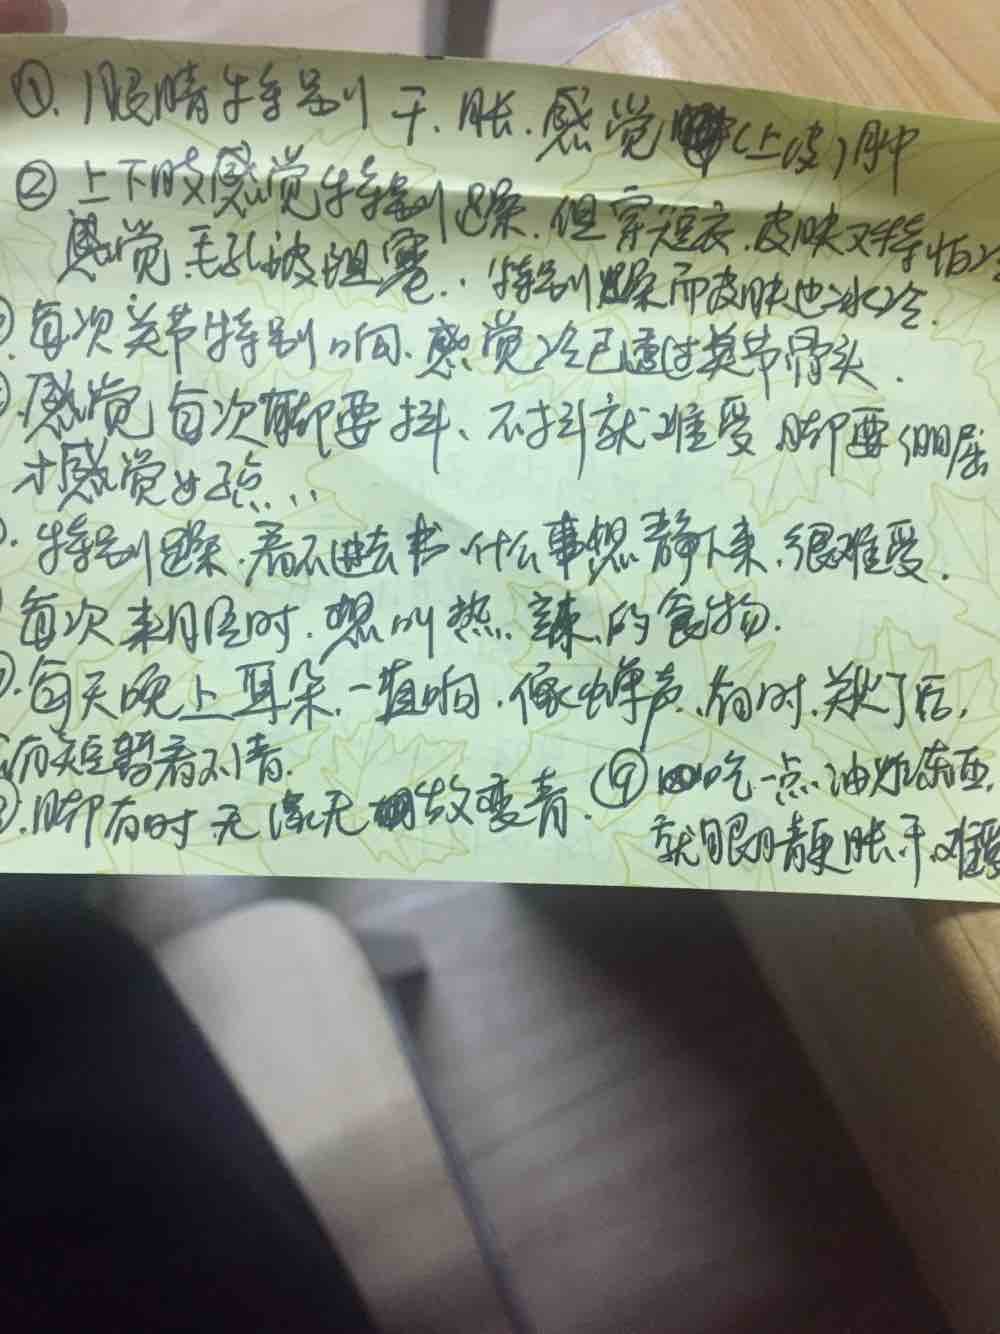 ①.眼睛特别干、胀.感觉(上皮)肿
②上下肢感觉特别躁.但穿短衣.皮肤又特怕冷
感觉毛孔被阻塞..特别躁而皮肤也冰冷.
.每次关节特别响.感觉冷已透过关节骨头.
.感觉每次脚要抖、不抖就难受.脚要倔屈
才感觉好点..
.特别躁.看不进去书.什么事想静下来.很难受.
每次来月经时.想叫热.辣.的食物.
.每天晚上耳朵.一直响.像蝉声.有时.关灯后,
有短暂看不清.
.脚有时无缘无故变青.
⑨吃一点油炸东西,
就眼睛更胀.干.难受